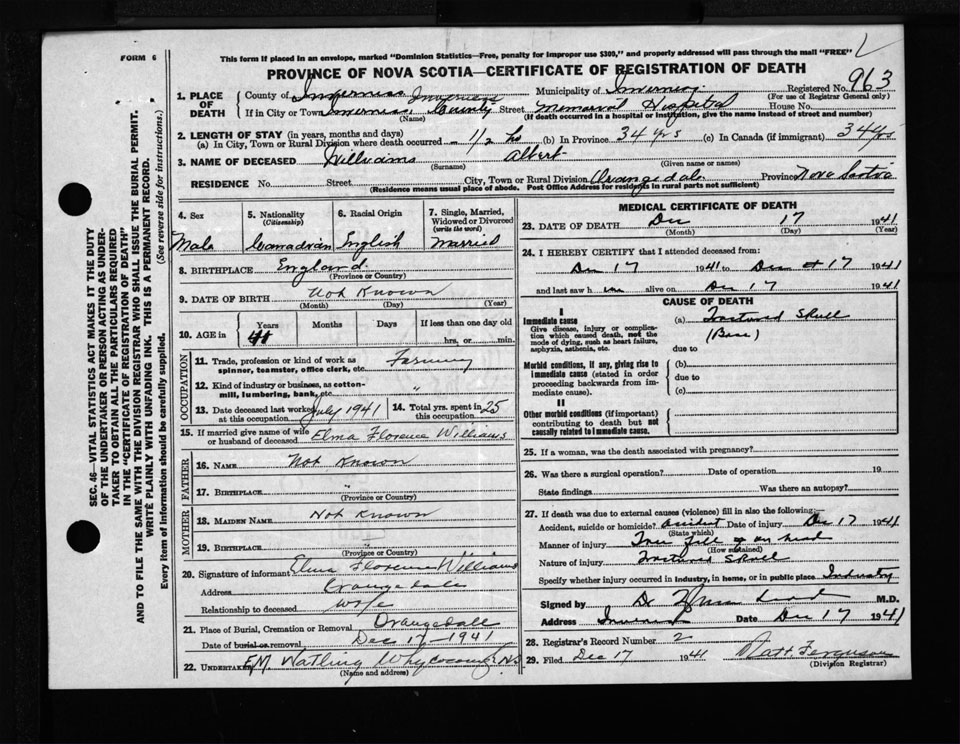 FORM 6
This form if placed in an envelope, marked "Dominion Statistics—Free, penalty for improper use $300," and properly addressed will pass through the mail "FREE"
PROVINCE OF NOVA SCOTIA—CERTIFICATE OF REGISTRATION OF DEATH
Registered No. 963
(For use of Registrar General only)
1. PLACE OF DEATH
County of Inverness Municipality of Inverness
If in City or Town Inverness, Inverness County Street Memorial Hospital House No.
(Name) (If death occurred in a hospital or institution, give the name instead of street and number)
2. LENGTH OF STAY (in years, months and days)
(a) In City, Town or Rural Division where death occurred - 1/2 hs (b) In Province 34 yrs (c) In Canada (if immigrant) 34 yrs
3. NAME OF DECEASED Williams Albert
(Surname) (Given name or names)
RESIDENCE No. Street City, Town or Rural Division Orangedale Province Nova Scotia
(Residence means usual place of abode. Post Office Address for residents in rural parts not sufficient)
4. Sex Male
5. Nationality (Citizenship) Canadian
6. Racial Origin English
7. Single, Married, Widowed or Divorced (write the word) Married
8. BIRTHPLACE England
(Province or Country)
9. DATE OF BIRTH Not Known
(Month) (Day) (Year)
10. AGE in Years 41 Months Days If less than one day old hrs, or min.
OCCUPATION
11. Trade, profession or kind of work as spinner, teamster, office clerk, etc. Farming
12. Kind of industry or business, as cotton-mill, lumbering, bank, etc. "
13. Date deceased last worked at this occupation July 1941
14. Total yrs. spent in this occupation 25
15. If married give name of wife or husband of deceased Elma Florence Williams
FATHER
16. NAME Not Known
17. BIRTHPLACE "
(Province or Country)
MOTHER
18. MAIDEN NAME Not Known
19. BIRTHPLACE "
(Province or Country)
20. Signature of informant Elma Florence Williams
Address Orangedale
Relationship to deceased wife
21. Place of Burial, Cremation or Removal Orangedale
Date of burial or removal Dec 17 - 1941
22. UNDERTAKER F.M. Watling Whycocomagh N.S
(Name and address)
MEDICAL CERTIFICATE OF DEATH
23. DATE OF DEATH Dec 17 1941
(Month) (Day) (Year)
24. I HEREBY CERTIFY that I attended deceased from:
Dec 17 1941 to Dec 17 1941
and last saw him alive on Dec 17 1941
CAUSE OF DEATH
I
Immediate cause
Give disease, injury or complication which caused death, not the mode of dying, such as heart failure, asphyxia, asthenia, etc.
(a) Fractured Skull
(Base)
due to
Morbid conditions, if any, giving rise to immediate cause (stated in order proceeding backwards from immediate cause).
(b)
due to
(c)
II
Other morbid conditions (if important) contributing to death but not causally related to immediate cause.
25. If a woman, was the death associated with pregnancy?
26. Was there a surgical operation? Date of operation 19
State findings Was there an autopsy?
27. If death was due to external causes (violence) fill in also the following:—
Accident, suicide or homicide? accident Date of injury Dec 17 1941
(State which)
Manner of injury Tree fell on head
(How sustained)
Nature of injury Fractured Skull
Specify whether injury occurred in industry, in home, or in public place Industry
Signed by Dr M.D.
Address Inverness Date Dec 17 1941
28. Registrar's Record Number 2
29. Filed Dec 17 1941 Matt. Ferguson
(Division Registrar)
SEC. 46—VITAL STATISTICS ACT MAKES IT THE DUTY
OF THE UNDERTAKER OR PERSON ACTING AS UNDER-
TAKER TO OBTAIN ALL THE PARTICULARS REQUIRED
IN THE "CERTIFICATE OF REGISTRATION OF DEATH"
AND TO FILE THE SAME WITH THE DIVISION REGISTRAR WHO SHALL ISSUE THE BURIAL PERMIT.
WRITE PLAINLY WITH UNFADING INK. THIS IS A PERMANENT RECORD.
Every item of information should be carefully supplied. (See reverse side for instructions.)